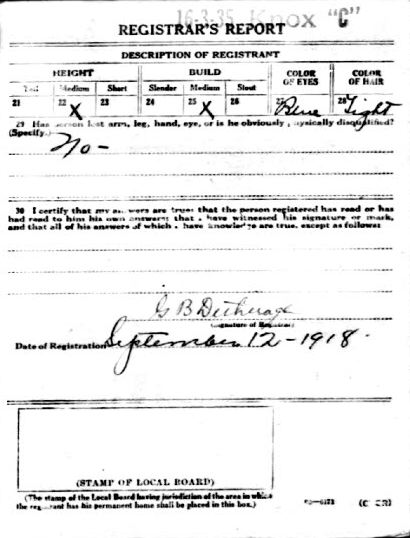 16-3-35 Knox "C"
REGISTRAR'S REPORT
DESCRIPTION OF REGISTRANT
HEIGHT BUILD COLOR OF EYES COLOR OF HAIR
Tall Medium Short Slender Medium Stout
21 22 X 23 24 25 X 26 27 Blue 28 Light
29 Has person lost arm, leg, hand, eye, or is he obviously physically disqualified?
(Specify.)
No-
30 I certify that my answers are true; that the person registered has read or has
had read to him his own answers; that I have witnessed his signature or mark,
and that all of his answers of which I have knowledge are true, except as follows:
G B Detherage
(Signature of Registrar)
Date of Registration September 12-1918-
(STAMP OF LOCAL BOARD)
(The stamp of the Local Board having jurisdiction of the area in which
the registrant has his permanent home shall be placed in this box.)